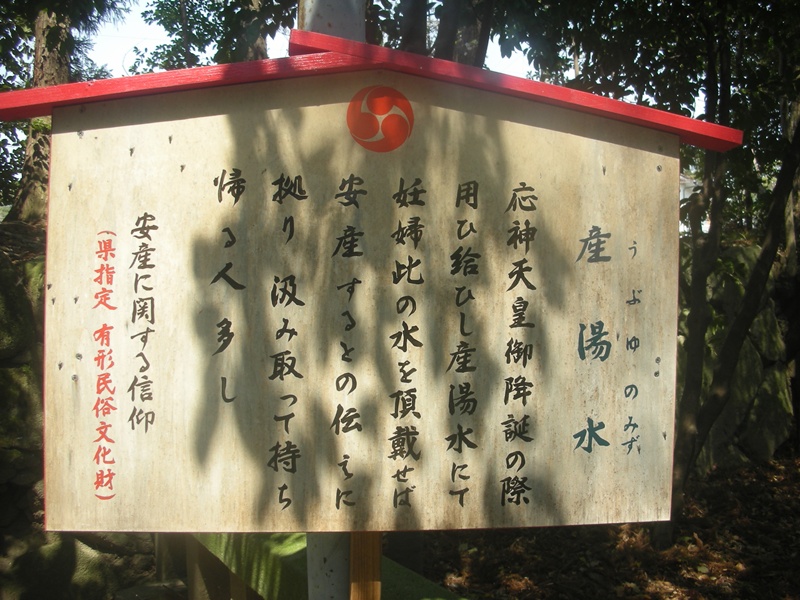 うぶゆのみず
産湯水
応神天皇御降誕の際
用ひ給ひし産湯水にて
妊婦此の水を頂戴せば
安産するとの伝えに
拠り汲み取って持ち
帰る人多し
安産に関する信仰
(県指定 有形民俗文化財)